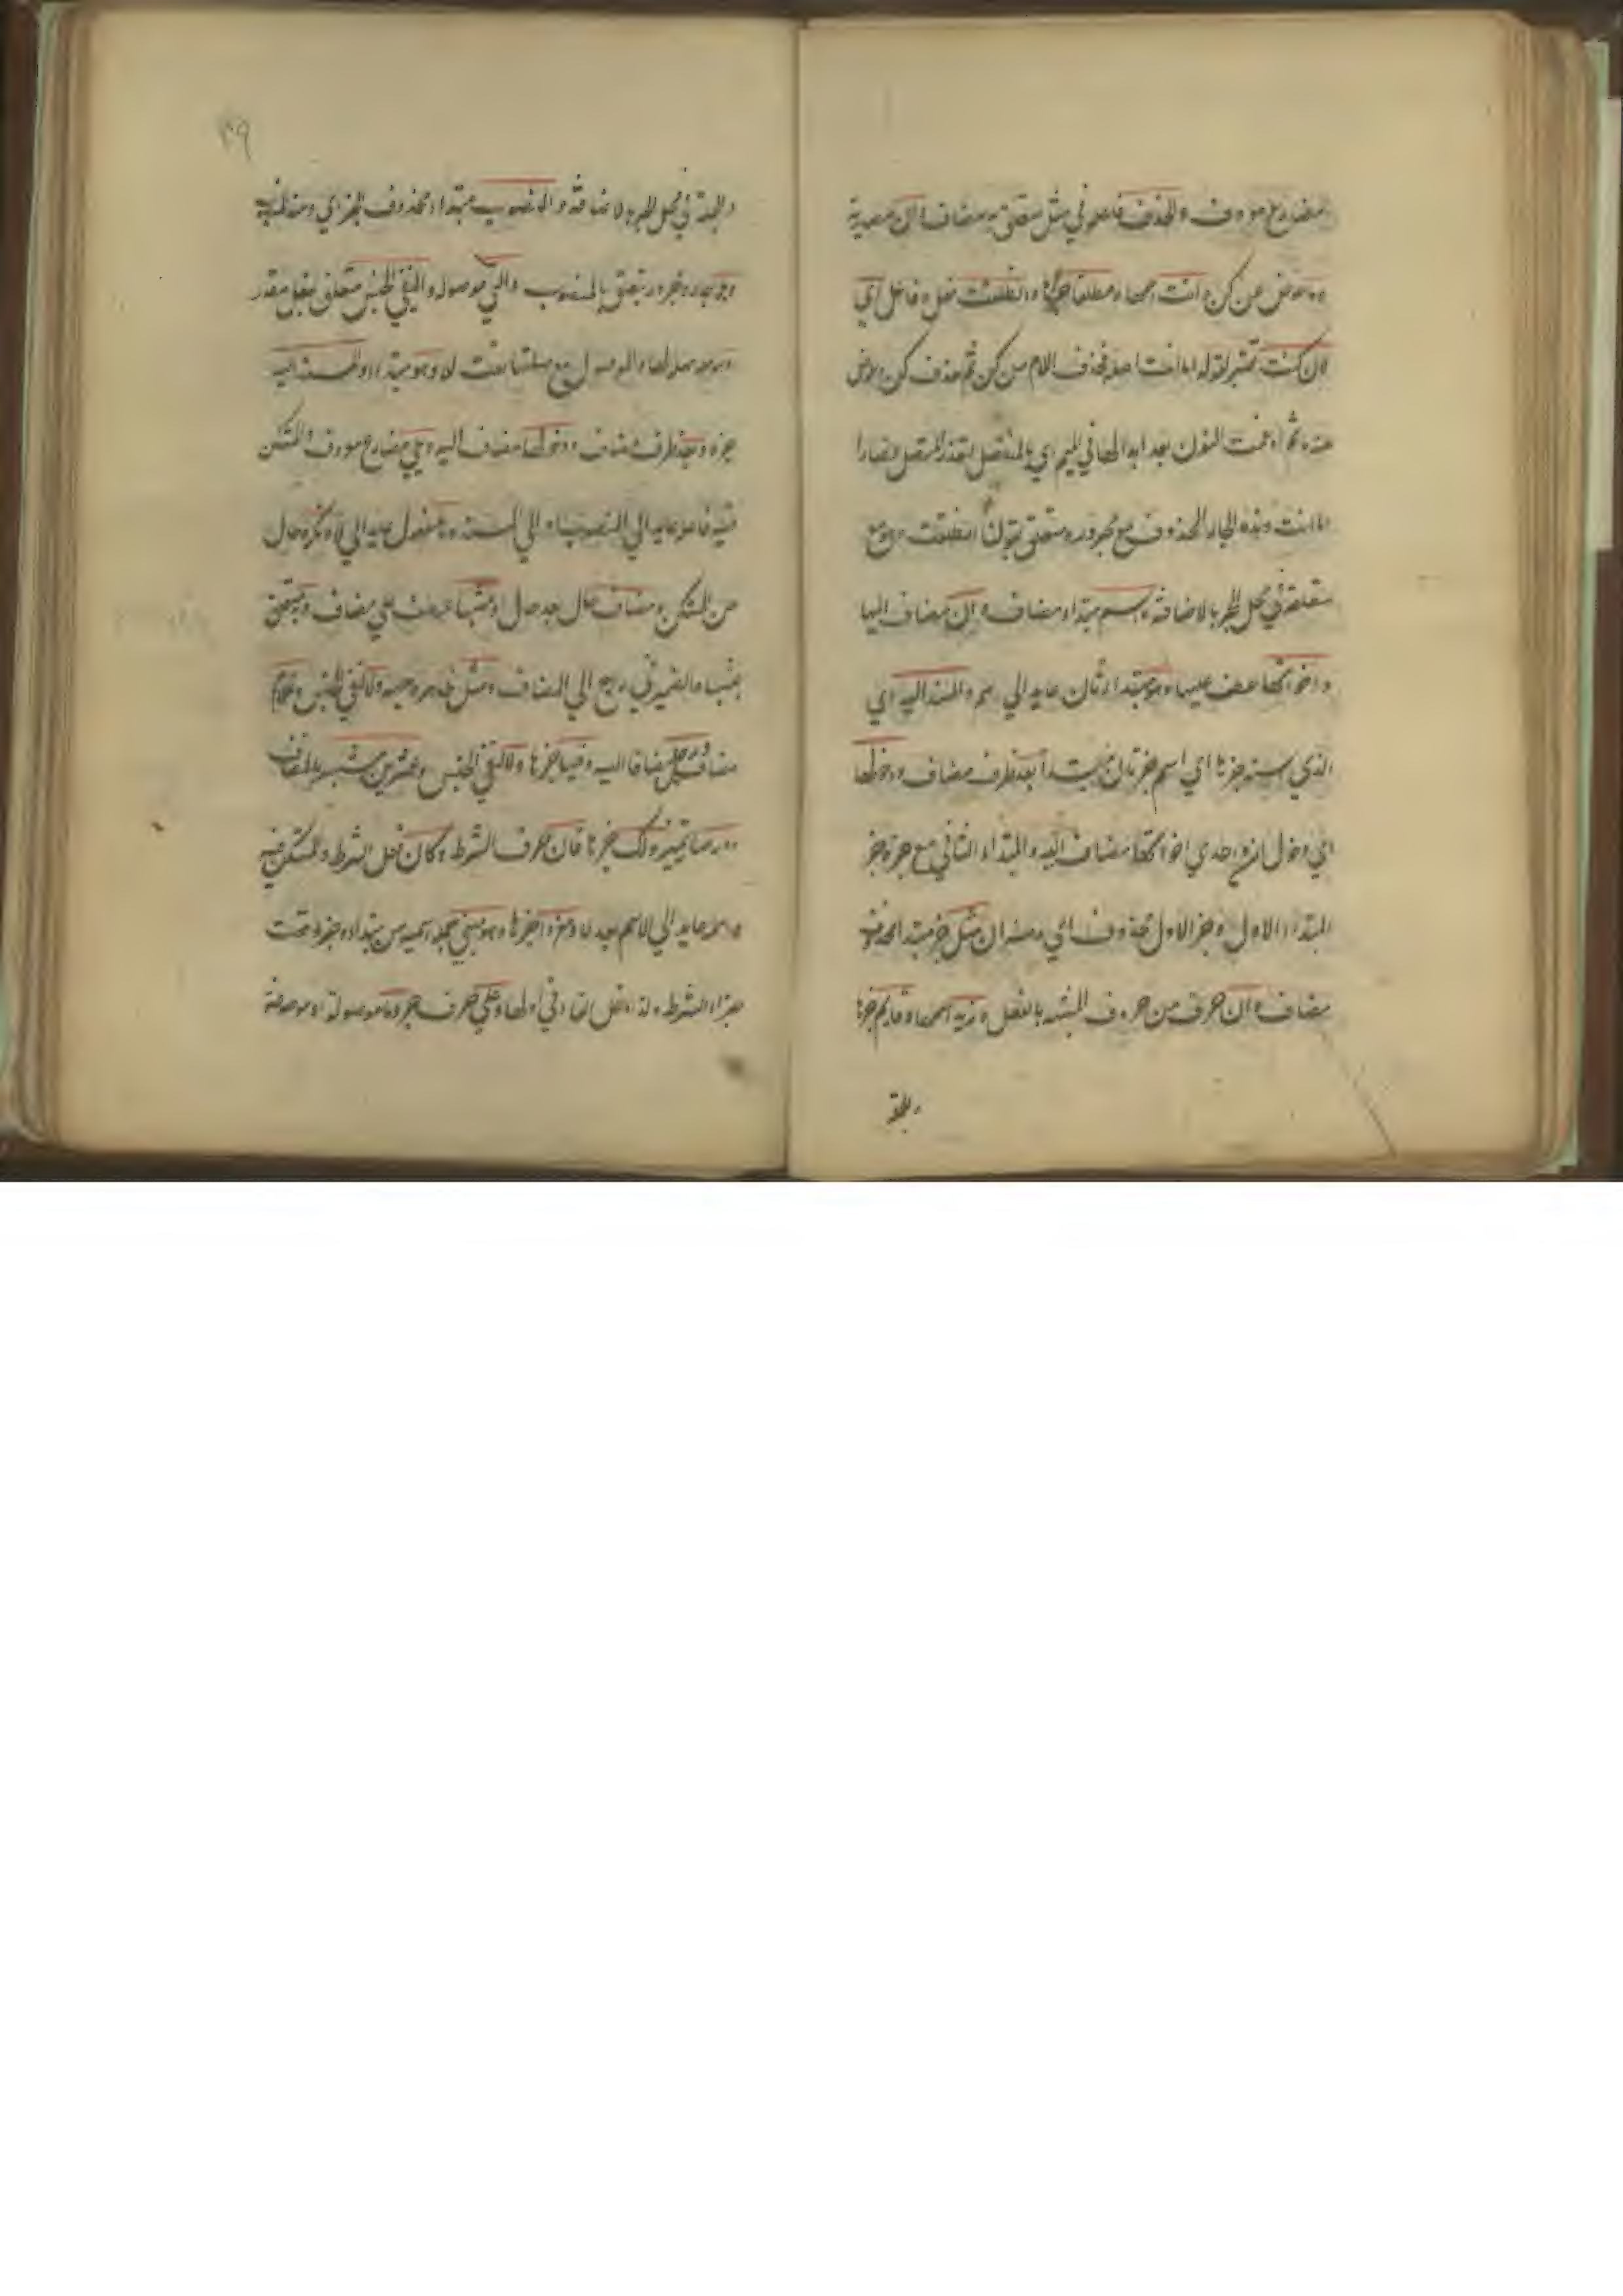 مضارع معروف والحذف فاعله في مثل متعلق به مضاف ان مصدرية
وما عوض عن كن وانت اسمها ومنطلقا خبرها وانطلقت فعل وفاعل اي
لان كنت تفسير لقوله اما انت اصله فحذف اللام من كن ثم حذف كن وعوض
عنه ما ثم ادغمت النون بعد ابدالها في الميم اي المنفصل بتعذر المتصل فصار
اما انت وهذه الجار المحذوف مع مجروره متعلق بقولك انطلقت وهو مع
متعلقه في محل الجر بالاضافة اسم مبتداء مضاف وان مضاف اليها
واخواتها عطف عليها وهو مبتداء ثان عايد الي اسم والمسند اليه اي
الذي اسند خبرها اي اسم خبر ثان مبتدأ بعد ظرف مضاف ودخولها
اي دخول ان واحدي اخواتها مضاف اليه والمبتداء الثاني مع خبره خبر
المبتداء الاول وخبر الاول محذوف اي ومنه ان مثل خبر مبتداء محذوف
مضاف وان حرف من حروف المشبه بالفعل وزيد اسمها وقايم خبرها
والجملة
٣٩
والجملة في محل الجر بالاضافة والمنصوب مبتداء محذوف الخبر اي ومنه المنصوب
وبلا جار ومجرور متعلق بالمنصوب والتي موصولة ولنفي الجنس متعلق بفعل مقدر
والموصول مع صلتها نعت لا وهو مبتداء والمسند اليه
خبره وبعد ظرف مضاف ودخولها مضاف اليه ويلي مضارع معروف والمستكن
فيه فاعله عايد الي المنصوب او الي المسند وها مفعول عايد الي لا ونكرة حال
من المستكن ومضافا حال بعد حال او مشبها عطف علي مضاف وبه متعلق
بمشبها والضمير في به راجع الي المضاف ومثل ولا لنفي الجنس وغلام
مضاف ورجل مضافا اليه وفيها خبرها ولا لنفي الجنس وعشرين مشبه بالمضاف
ودرهما تمييز ولك خبرها فان حرف الشرط وكان فعل الشرط والمستكن فيه
اسمه عايد الي الاسم بعد لا ومفردا خبرها وهو مبني جملة اسمية من مبتداء وخبره وقعت
جزاء الشرط وعلي حرف جر وما موصولة او موصوفة